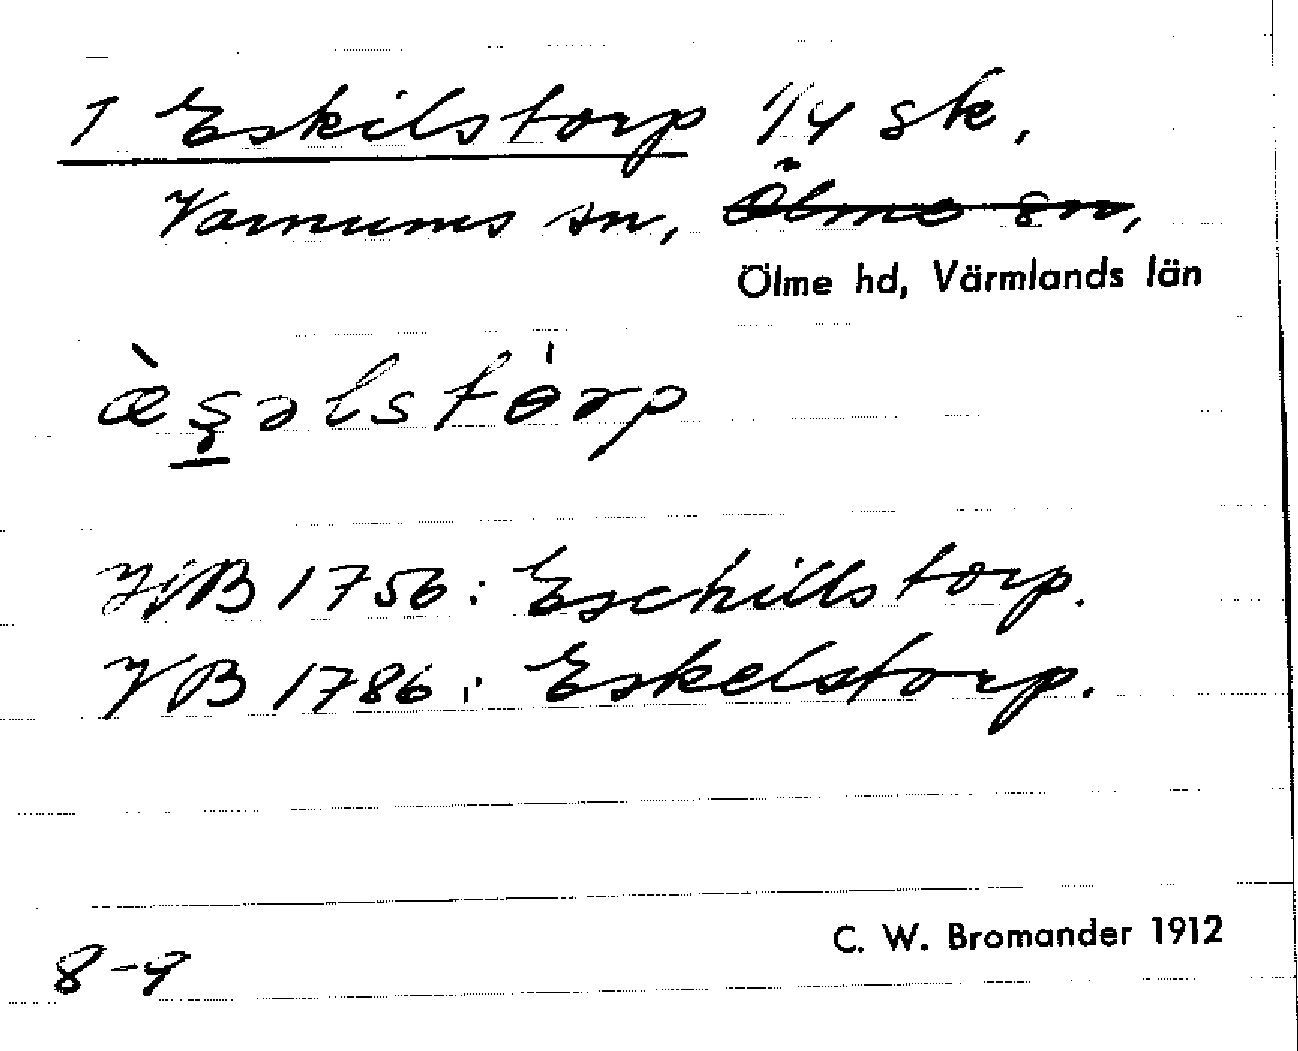 1 Eskilstorp 1/4 sk.
Varnums sn, Ölme sn,
Ölme hd, Värmlands län
æ̀ş̱əlstórp
HjB 1756: Eschillstorp.
VB 1786: Eskelstorp.
C. W. Bromander 1912
8-9